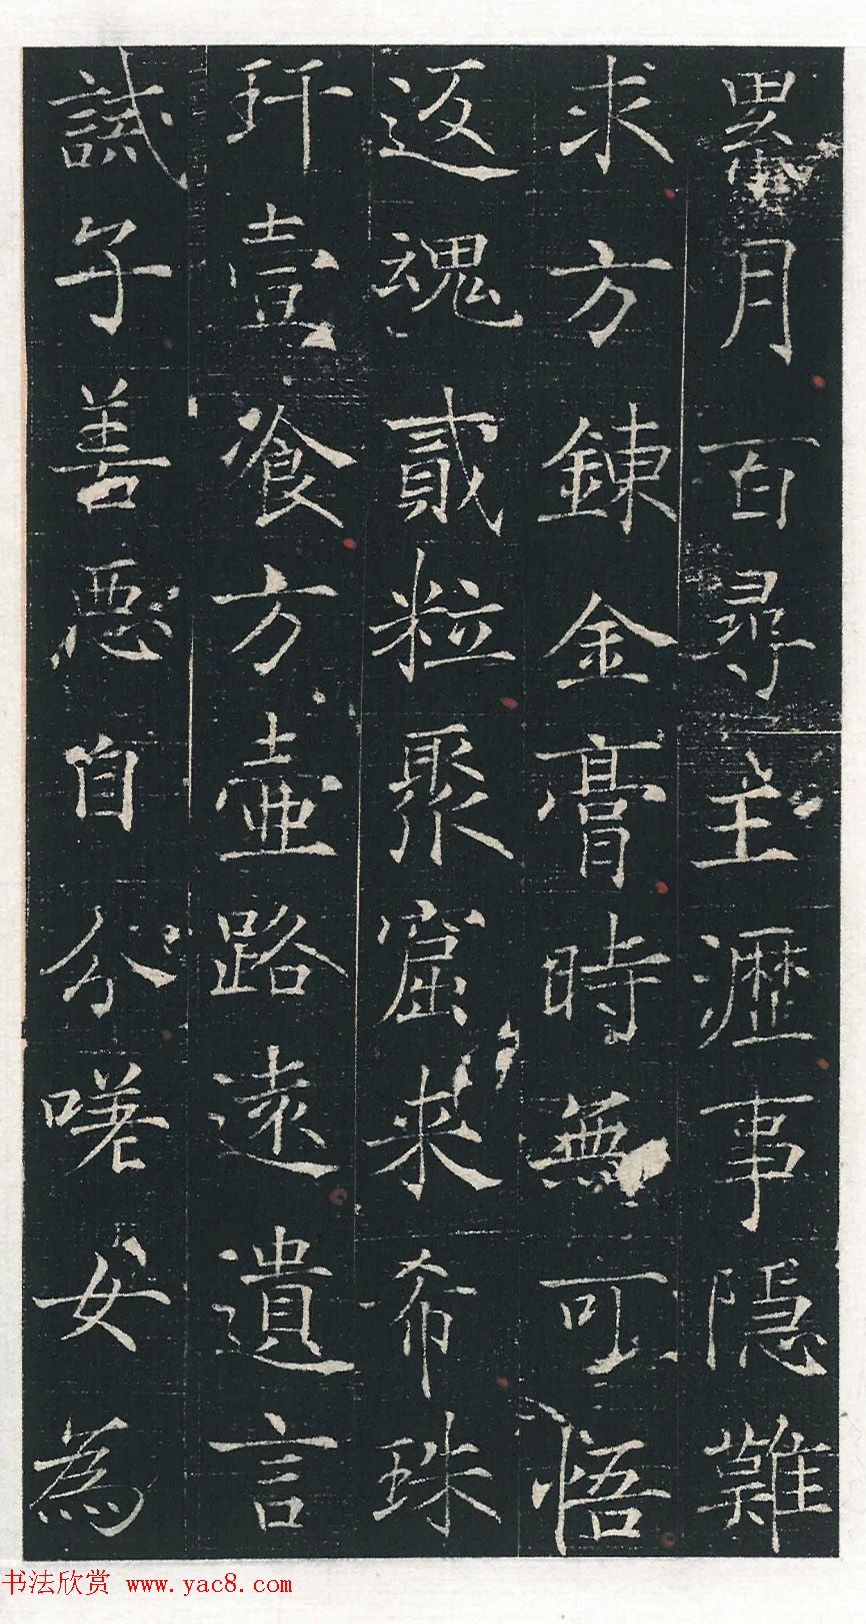 累月百尋主瀝事隱難
求方鍊金膏時無可悟
返魂貳粒聚窟来希珠
玕壹飡方壺路遠遺言
誡子善惡自分嗟女為
书法欣赏 www.yac8.com